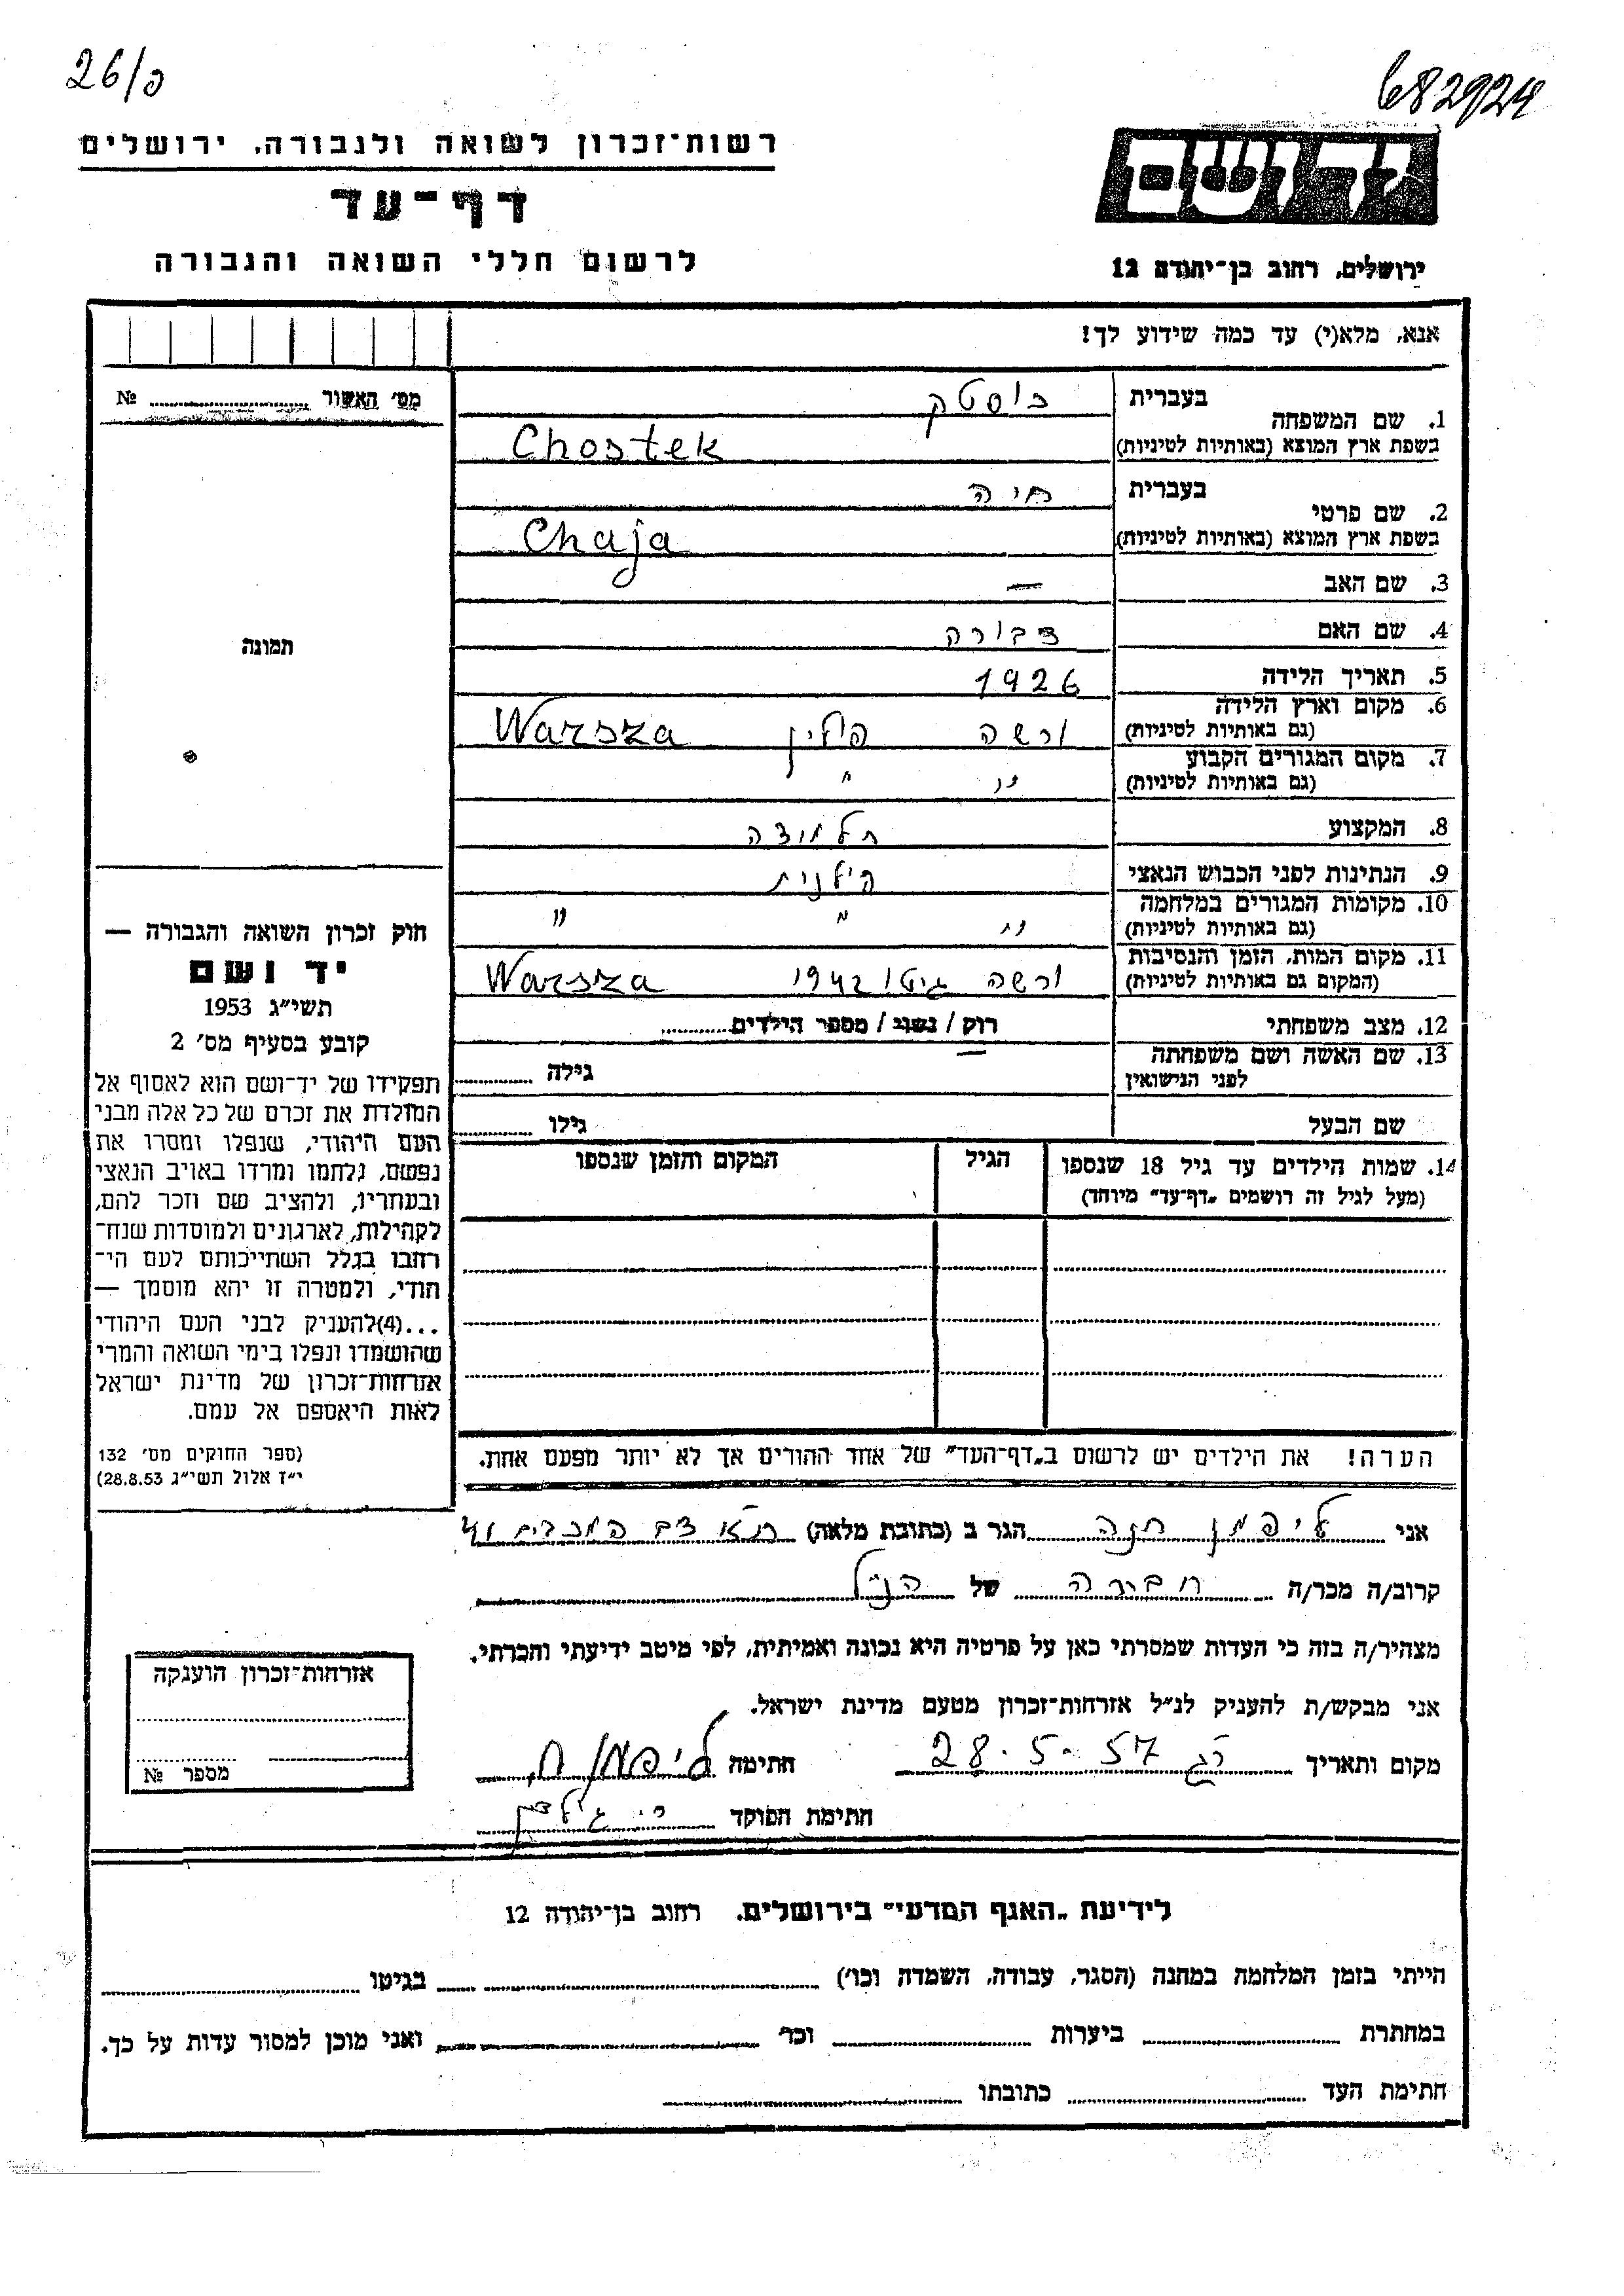 26/כ
682924
רשות־זכרון לשואה ולגבורה, ירושלים
דף־עד
לרשום חללי השואה והגבורה
יד ושם
ירושלים, רחוב בן־יהודה 12
אנא, מלא(י) עד כמה שידוע לך!
מס׳ האשור № ..........
תמונה
בעברית כוסטק
1. שם המשפחה
בשפת ארץ המוצא (באותיות לטיניות) Chostek
בעברית חיה
2. שם פרטי
בשפת ארץ המוצא (באותיות לטיניות) Chaja
3. שם האב —
4. שם האם דבורה
5. תאריך הלידה 1926
6. מקום וארץ הלידה
(גם באותיות לטיניות) ורשה פולין Warsza
7. מקום המגורים הקבוע
(גם באותיות לטיניות) " "
8. המקצוע תלמידה
9. הנתינות לפני הכבוש הנאצי פולנית
10. מקומות המגורים במלחמה
(גם באותיות לטיניות) " " "
11. מקום המות, הזמן והנסיבות
(המקום גם באותיות לטיניות) ורשה גיטו 1942 Warsza
12. מצב משפחתי רוק / נשוי / מספר הילדים..........
13. שם האשה ושם משפחתה —
לפני הנישואין גילה ..........
שם הבעל גילו ..........
14. שמות הילדים עד גיל 18 שנספו הגיל המקום והזמן שנספו
(מעל לגיל זה רושמים „דף־עד״ מיוחד)
חוק זכרון השואה והגבורה —
יד ושם
תשי״ג 1953
קובע בסעיף מס׳ 2
תפקידו של יד־ושם הוא לאסוף אל
המולדת את זכרם של כל אלה מבני
העם היהודי, שנפלו ומסרו את
נפשם, נלחמו ומרדו באויב הנאצי
ובעוזריו, ולהציב שם וזכר להם,
לקהילות, לארגונים ולמוסדות שנח־
רחבו בגלל השתייכותם לעם הי־
הודי, ולמטרה זו יהא מוסמך —
...(4)להעניק לבני העם היהודי
שהושמדו ונפלו בימי השואה והמרי
אזרחות־זכרון של מדינת ישראל
לאות היאספם אל עמם.
(ספר החוקים מס׳ 132
י״ז אלול תשי״ג 28.8.53)
הערה! את הילדים יש לרשום ב„דף־העד״ של אחד ההורים אך לא יותר מפעם אחת.
אני ליפמן חנה הגר ב (כתובת מלאה) המכבים 41
קרוב/ה מכר/ה חבירה של הנ״ל
מצהיר/ה בזה כי העדות שמסרתי כאן על פרטיה היא נכונה ואמיתית, לפי מיטב ידיעתי והכרתי.
אני מבקש/ת להעניק לנ״ל אזרחות־זכרון מטעם מדינת ישראל.
מקום ותאריך רג 28.5.57 חתימה ליפמן ח.
חתימת הפוקד
אזרחות־זכרון הוענקה
מספר №
לידיעת „האגף המדעי״ בירושלים, רחוב בן־יהודה 12
הייתי בזמן המלחמה במחנה (הסגר, עבודה, השמדה וכו׳) .......... בגיטו ..........
במחתרת .......... ביערות .......... וכו׳ .......... ואני מוכן למסור עדות על כך.
חתימת העד .......... כתובתו ..........